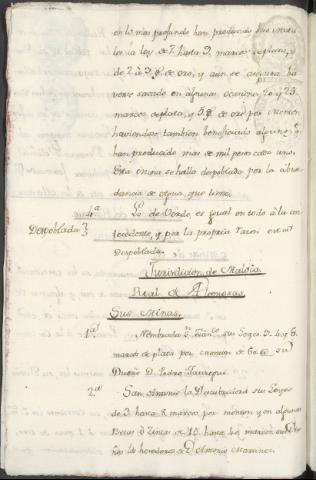 en lo mas profundo han producido sus metales
la ley de 7. hasta 9. marcos de plata, y
de 2 á 3. g.s de oro, y aun se asegura ha
verse sacado en algunas ocasiones 20. y 23.
marcos de plata, y 5 g.s de oro por monton
haviendose tambien beneficiado algunos q.e
han producido mas de mil pesos cada uno.
Esta mina se halla despoblada por la abun
dancia de Agua, que tiene.
4.a La de es igual en todo á la an
Despoblada tecedente, y por la propria razon está
Despoblada
Jurisdicion de
Real de
Sus Minas.
1.a Nombrada S.n Fran.co su Leyes 3. 4. y 6.
marcos de plata por monton de 60 @ su
Dueño D. Pedro
2.a San Antonio la Descubridora su Leyes
de 3 hasta 8 marcos por monton, y en algunas
hasta marcos
los herederos de D. Antonio Martinez